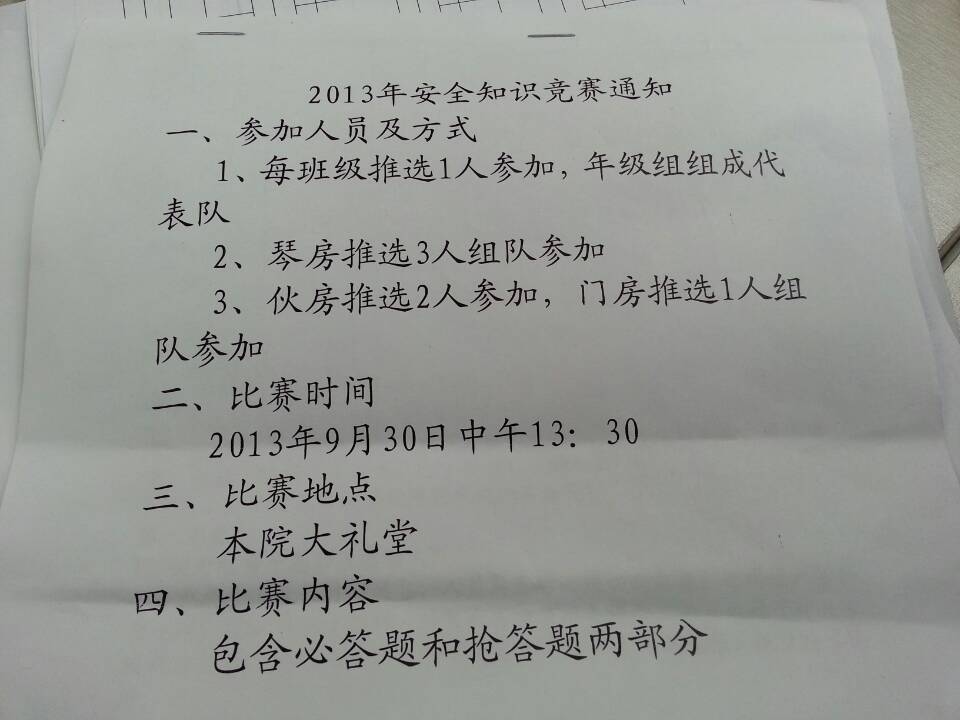 2013年安全知识竞赛通知
一、参加人员及方式
1、每班级推选1人参加，年级组组成代
表队
2、琴房推选3人组队参加
3、伙房推选2人参加，门房推选1人组
队参加
二、比赛时间
2013年9月30日中午13：30
三、比赛地点
本院大礼堂
四、比赛内容
包含必答题和抢答题两部分